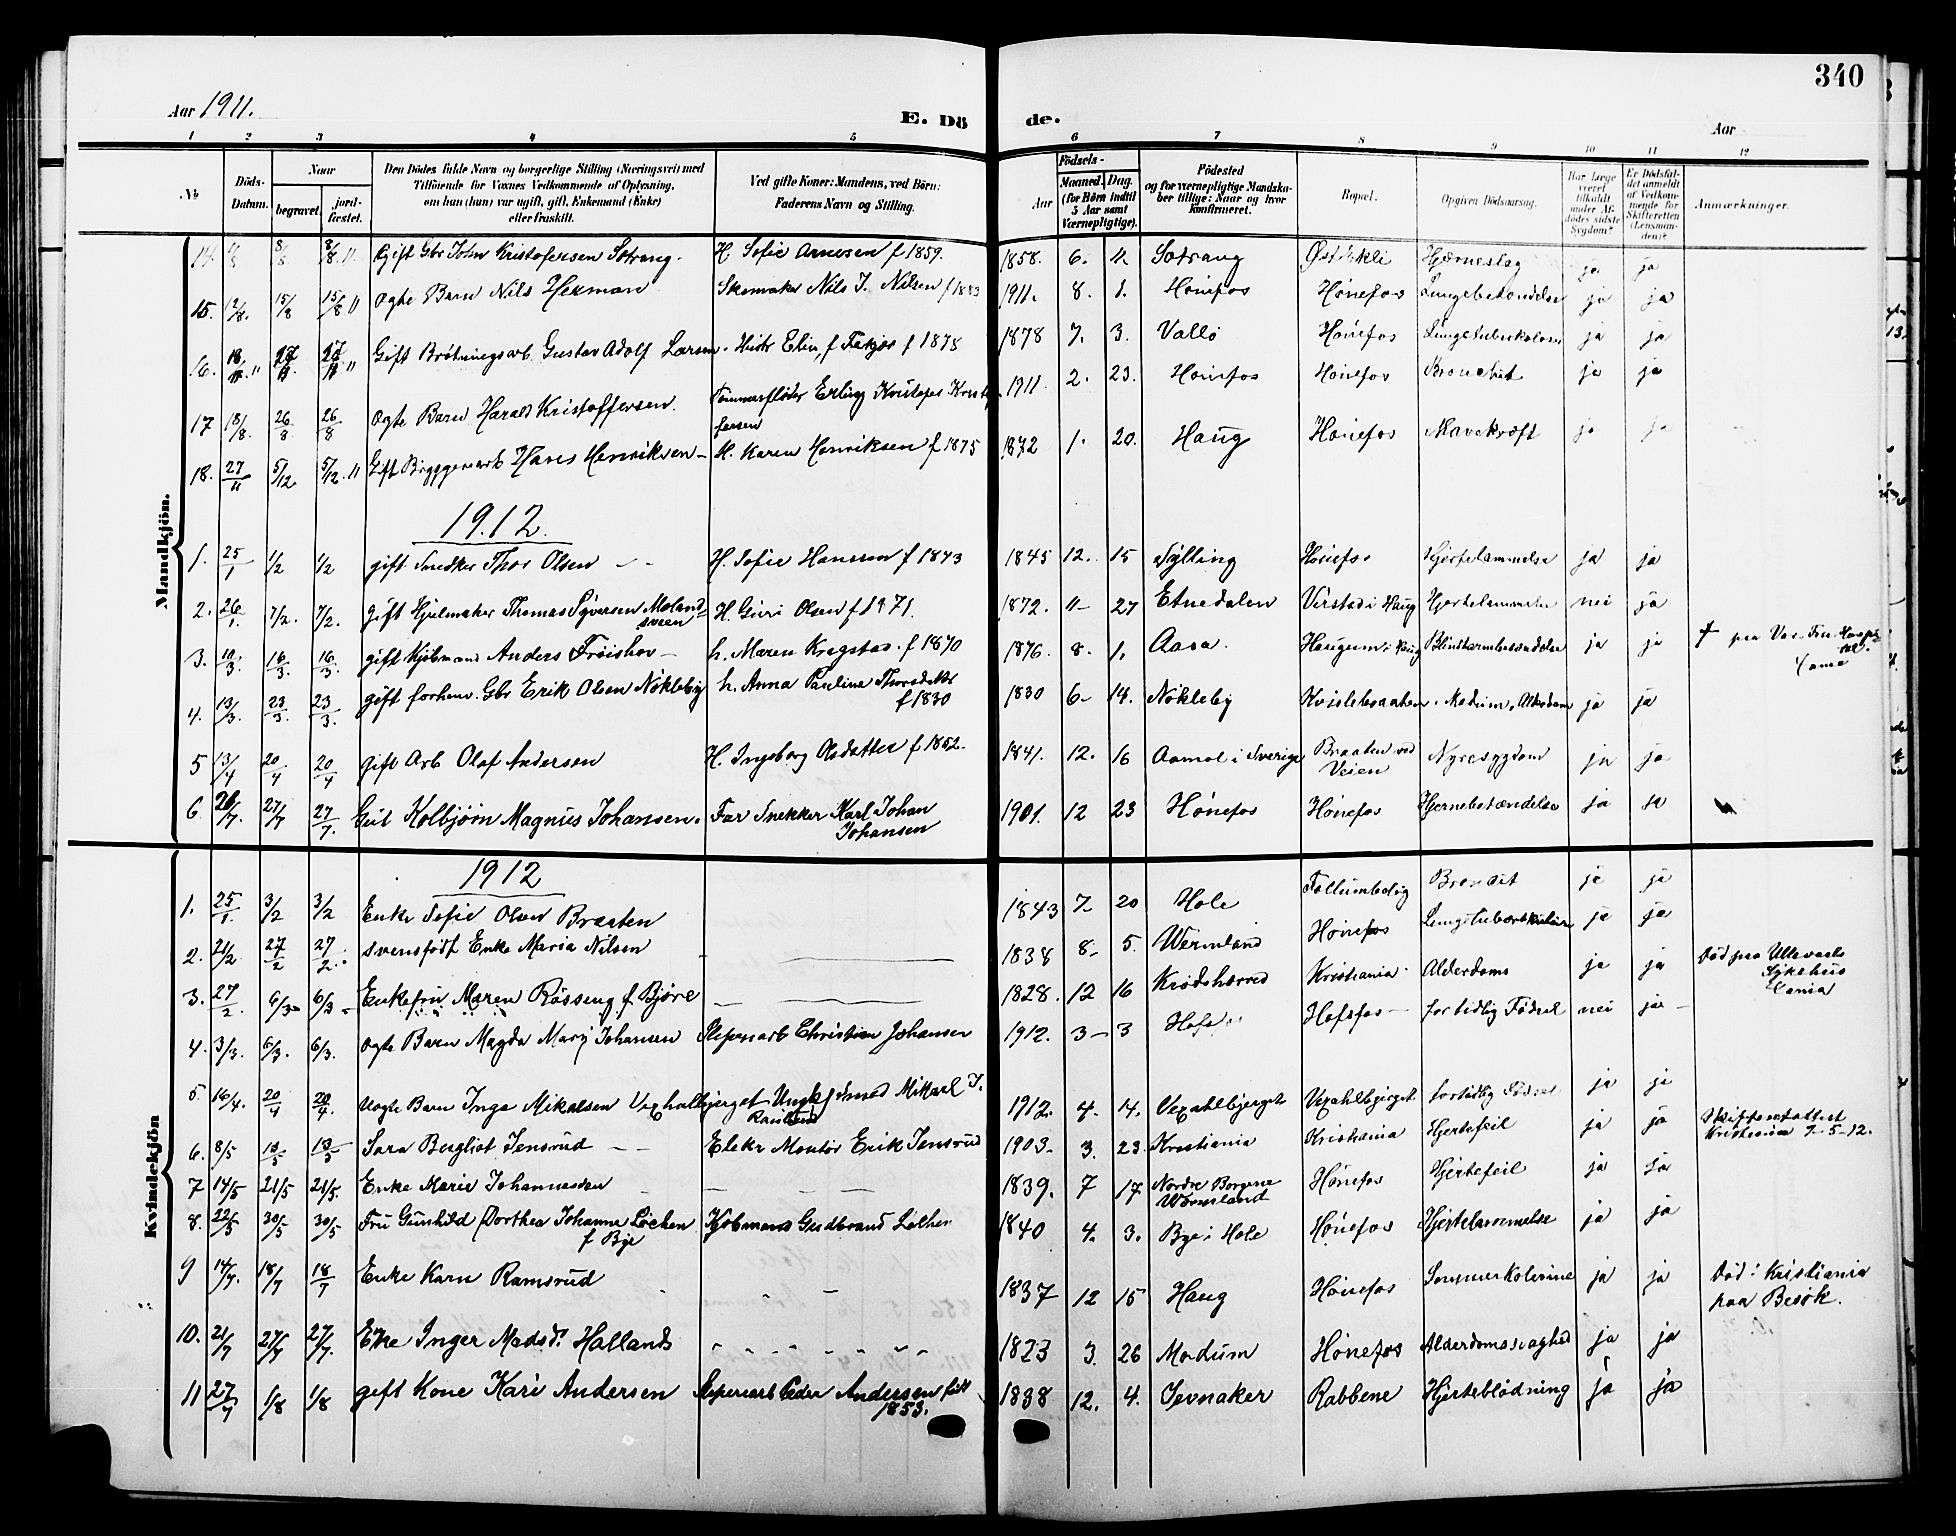 340
Aar 1911.
E. Dö
de.
Aar
1 2 3 4 5 6 7 8 9 10 11 12
No
Döds-Datum.
Naar
begravet.
jordfæstet.
Den Dödes fulde Navn og borgerlige Stilling (Næringsvei) med
Tilföiende for Voxnes Vedkommende af Oplysning,
om han (hun) var ugift, gift, Enkemand (Enke)
eller fraskilt.
Ved gifte Koner: Mandens, ved Börn:
Faderens Navn og Stilling.
Födsels-
Aar
Maaned. Dag.
(for Börn indtil
5 Aar samt
Værnepligtige).
Födested
og for værnepligtige Mandskaber tillige: Naar og hvor
konfirmeret.
Bopæl.
Opgiven Dödsaarsag.
Har Læge
været
tilkaldt
under Afdödes sidste
Sygdom?
Er Dödsfaldet anmeldt
af Vedkommende for
Skifteretten
(Lensmanden)?
Anmærkninger.
Mandkjön.
14. 8/8 8/8 " gift Gbr John Kristofersen Sotrang. H. Sofie Arnesen f 1859. 1858. 6. 11. Sotrang Hjerneslag ja ja
15. 12/8. 15/8 15/8 " ogte Barn Nils Herman Skomaker Nils J. Nilsen f 1883 1911. 8. 1. Hönefos Hönefos Lungebetændelse ja ja
16. 18/11. " 27/11. 27/11 " Gift Brötningsarb. Gustav Adolf Larsen. Hustr Elin, f 1878 1878 7. 3. Vallö Hönefos Lungetuberkulose ja ja
17 18/8. 26/8 26/8 ogte Barn Harald Kristoffersen. Tömmerfløder Erling Kristofer Kristoffersen 1911. 2. 23. Hönefos Hönefos Bronchit ja ja
18. 27/11 5/12 5/12. " Gift Bryggeriarb Hans Henriksen – H. Karen Henriksen f 1875 1872 1. 20. Haug Hönefos Mavekræft ja ja
1912.
1. 25/1 1/2 1/2 gift Snedker Thor Olsen – – H. Sofie Hansen f 1843 1845 12. 15 Sylling Hönefos Hjertelammelse ja ja
2. 26/1. 7/2. 7/2. gift Hjulmaker Thomas Syversen Moelandsveen H. Guri Olsen f 1871. 1872. 11– 27 Etnedalen Virstad i Haug Hjertelammelse nei ja
3. 10/3. 16/3. 16/3. gift Kjöbmand Anders Fröishov – h. Maren Kragstad. f 1870 1876. 8. 1. Aasa. Haugum i Haug Blindtarmbetændelse ja ja † paa Vor Frue Hospital. Xania
4. 13/3. 23/3. 23/3. gift forhenv. Gbr Erik Olsen Nökleby h. Anna Pauline Thorsdatter f 1830 1830 6– 14. Nökleby i Modum. Alderdom ja ja
5 13/4 20/4 20/4 gift Arb Olaf Andersen H. Ingeborg Olsdatter f 1852. 1841. 12. 16 Aamol i Sverige Braaten ved Veien Nyresygdom ja ja
6 20/7. 27/7 27/7. Gut Kolbjörn Magnus Johansen. Far Snekker Karl Johan Johansen 1901. 12 23 Hönefos Hönefos Hjernebetændelse ja ja
Kvindekjön
1912
1. 25/1. 3/2 3/2 Enke Sofie Olsen Braaten 1843 7– 20 Hole Follumbolig Broncit ja ja
2. 21/2 27/2 27/2. svenskfödt Enke Maria Nilsen – 1838 8– 5. Wermland Hönefos Lungetuberkulose ja ja
3. 27/2. 6/3 – 6/3 – Enkefru Maren Rösseng f. Björe – 1828. 12 16 Krödsherred Kristiania Alderdoms ja ja Död paa Ullevaals Sykehus Xania
4. 3/3. 6/3. 6/3. ogte Barn Magda Mary Johansen Sliperiarb Christian Johansen 1912. 3– 3 Hofsfos Hofsfos – for tidlig Födsel nei ja –
5. 16/4. 20/4 20/4. Uogte Barn Inga Mikalsen Vexhalbjerget Ungk f Smed Mikael J. 1912. 4– 14. Vexahlbjerget Vexahlbjerget for tidlig Födsel ja ja
6. 8/5 13/5 13/5 – Sara Bergliot Jensrud – – Elektr Montör Erik Jensrud 1903. 3. 23. Kristiania Kristiania Hjertefeil ja ja Skifteattest Kristiania 7–5–12.
7 14/5 21/5 21/5. Enke Marie Johannesdan 1839. 7 17 Nordre Borgene Wermland Hönefos Hjertefeil ja ja
8. 22/5 30/5 30/5 Fru Gunhild Dorthea Johanne Löcken f Bye Kjöbmand Gudbrand Löcken 1840 4. 3. Bye i Hole Hönefos Hjertelammelse ja ja
9 14/7. 18/7 18/7 Enke Karn Ramsrud 1837 12 15 Haug Hönefos Sommerkolerine ja ja Död i Kristiania paa Besök.
10. 21/7 27/7 27/7. Enke Inger Madsd. Halland 1823 3. 26 Modum Hönefos Alderdomssvaghed ja ja
11 27/7 1/8 1/8 gift Kone Kari Andersen Sliperiarb Peder Andersen född 1853. 1838 12. 4. Jevnaker Rabbene Hjerteblödning ja ja